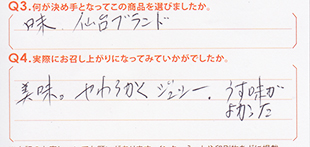 Q3.何が決め手となってこの商品を選びましたか。
味 仙台ブランド
Q4.実際にお召し上がりになってみていかがでしたか。
美味。やわらかく ジューシー、うす味が
よかった